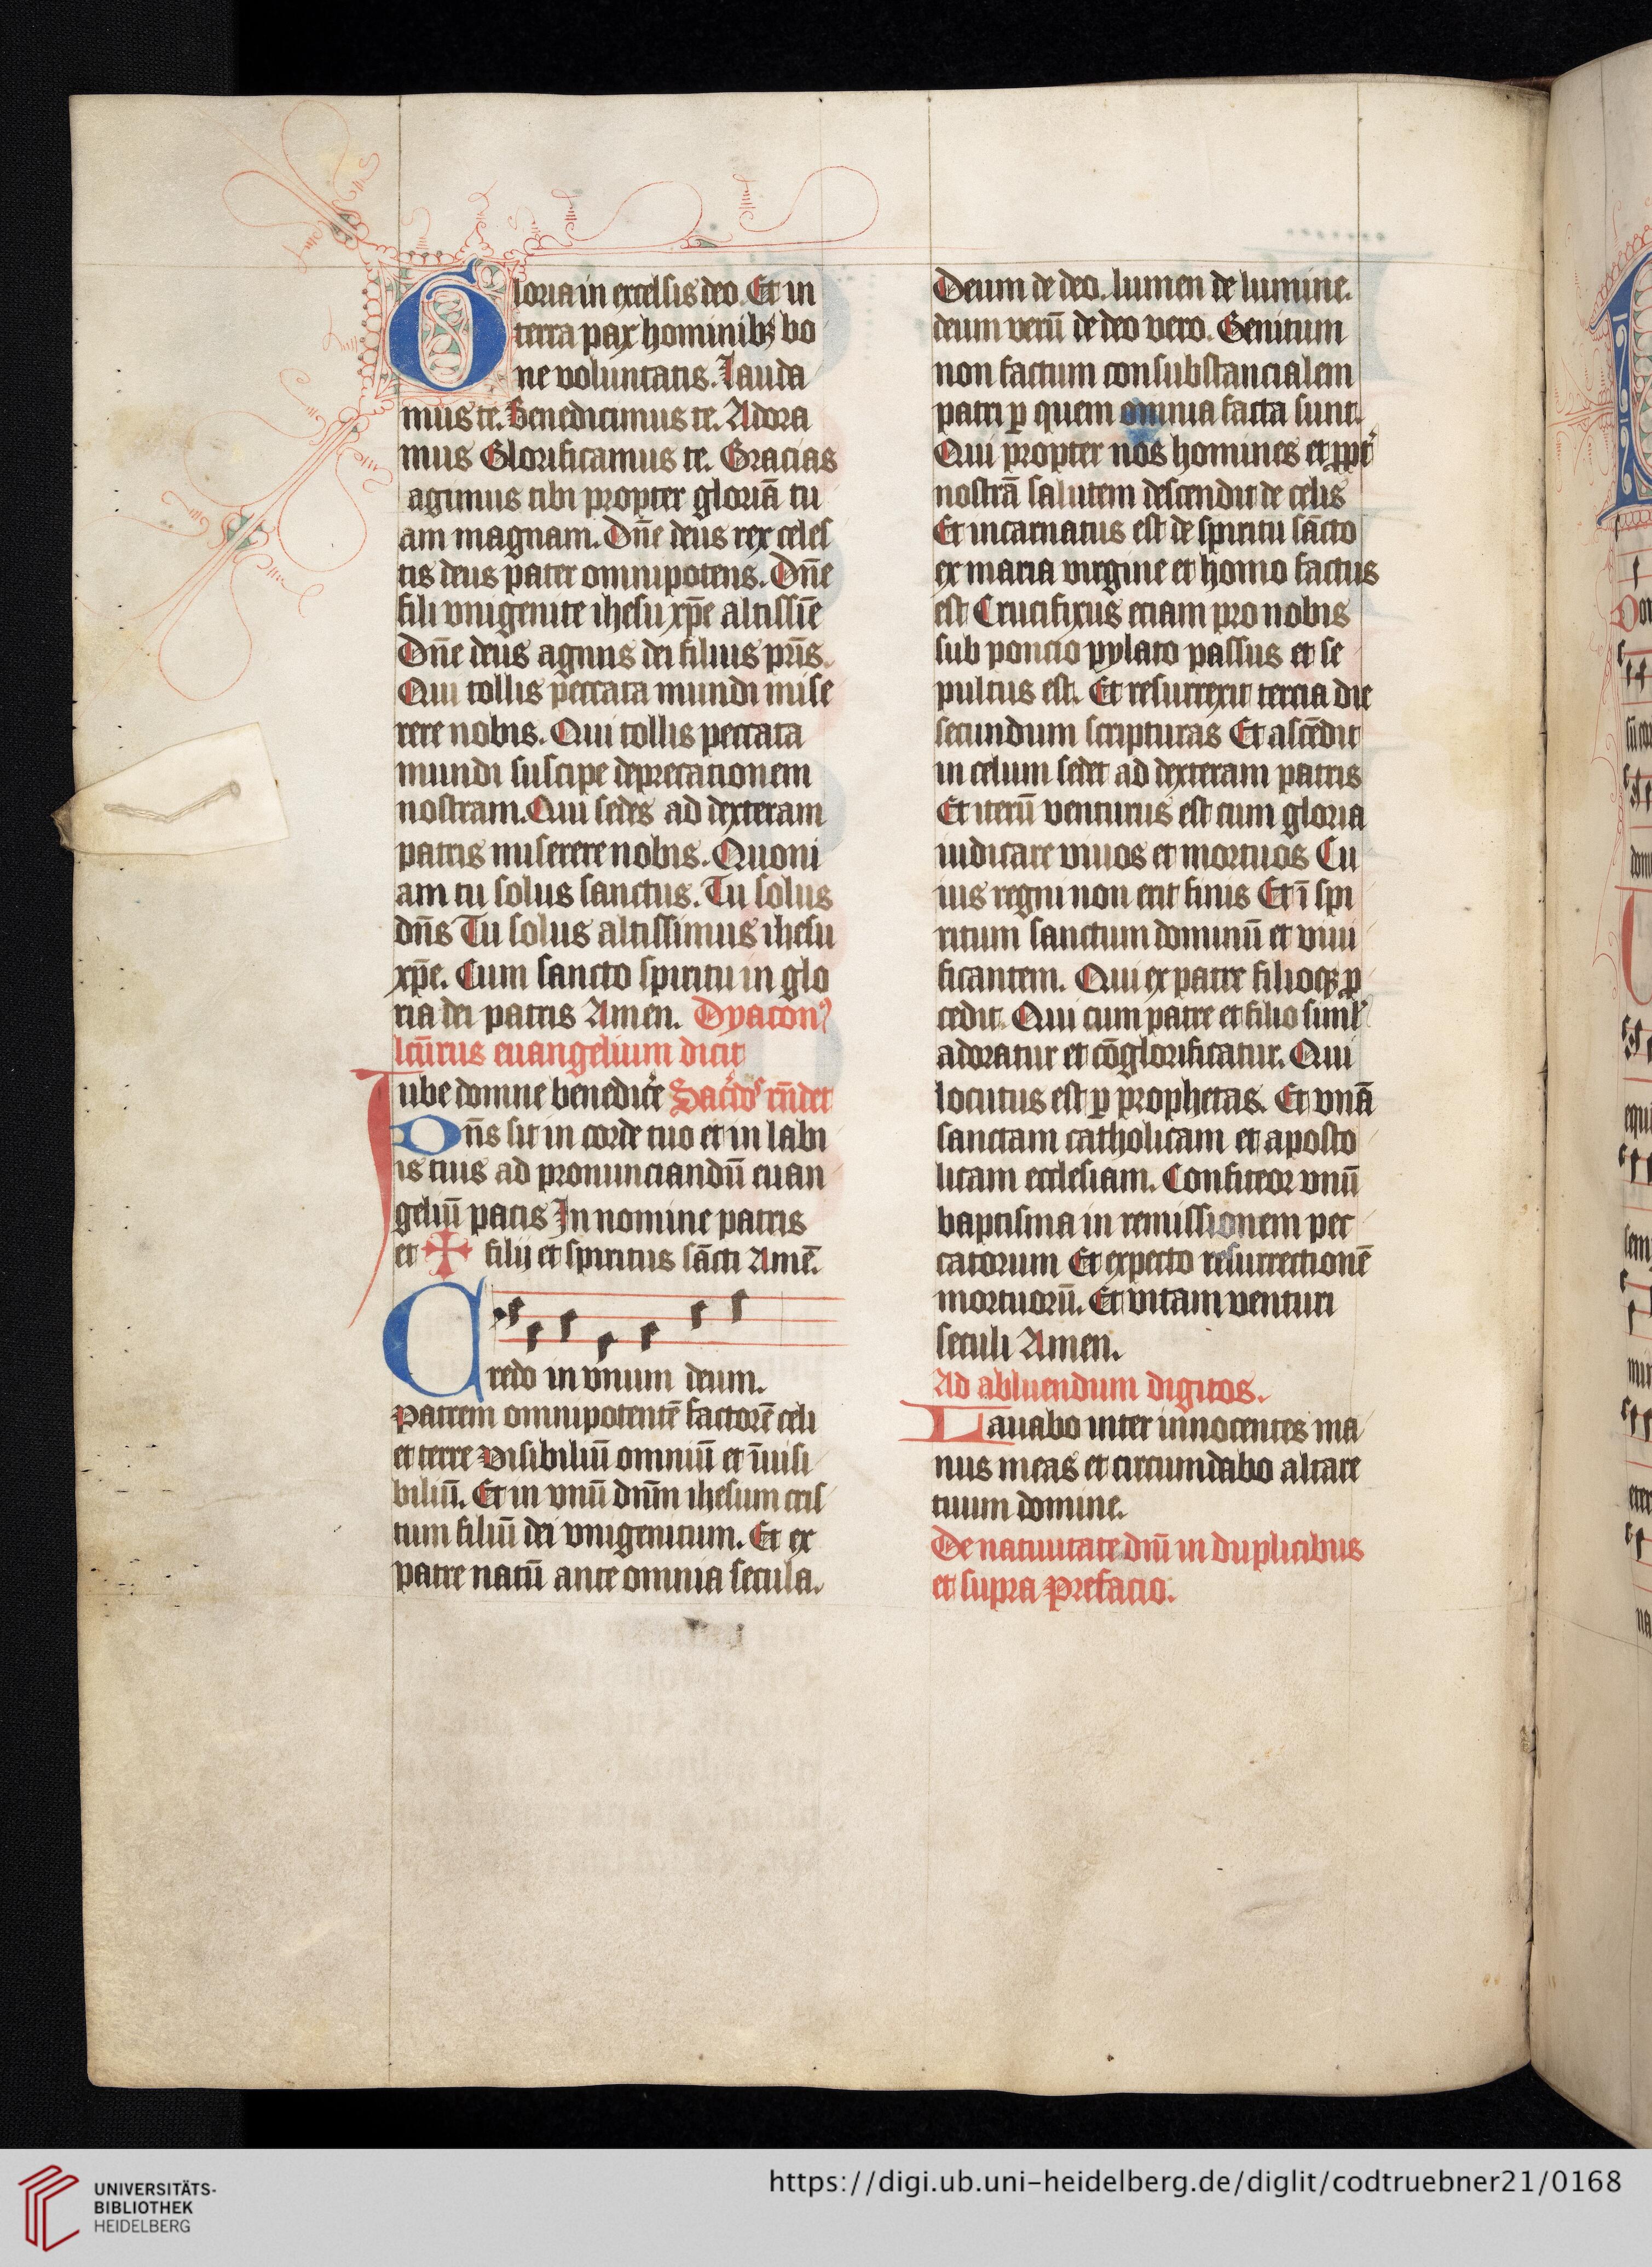 Gloria in excelsis deo. Et in
terra pax hominibꝫ bo
ne voluntatis. Lauda
mus te. Benedicimus te. Adora
mus Glorificamus te. Gracias
agimus tibi propter gloriā tu
am magnam. Dn̄e deus rex celes
tis deus pater omnipotens. Dn̄e
fili vnigenite ihesu xp̄e altissīe
Dn̄e deus agnus dei filius pr̄is.
Qui tollis peccata mundi mise
rere nobis. Qui tollis peccata
mundi suscipe deprecationem
nostram. Qui sedes ad dexteram
patris miserere nobis. Quoni
am tu solus sanctus. Tu solus
dn̄s Tu solus altissimus ihesu
xp̄e. Cum sancto spiritu in glo
ria dei patris Amen. Dyaconꝰ
lcūrus euangelium dicit
Iube domne benedic̉e Sac̉dos rn̄det
Dn̄s sit in corde tuo et in labi
is tuis ad pronunciandū euan
geliū pacis In nomine patris
et ✠ filij et spiritus sācti Amē.
Credo in vnum deum.
Patrem omnipotentē factorē celi
et terre visibiliū omniū et īuisi
biliū. Et in vnū dnm̄ ihesum cris
tum filiū dei vnigenitum. Et ex
patre natū ante omnia secula.
Deum de deo. lumen de lumine.
deum verū de deo vero. Genitum
non factum consubstancialem
patri ꝑ quem omnia facta sunt.
Qui propter nos homines et ꝓpt̉
nostrā salutem descendit de celis
Et incarnatus est de spiritu sācto
ex maria virgine et homo factus
est Crucifixus eciam pro nobis
sub poncio pylato passus et se
pultus est. Et resurrexit tercia die
secundum scripturas Et ascēdit
in celum sedet ad dexteram patris
Et iterū venturus est cum gloria
iudicare viuos et mortuos Cu
ius regni non erit finis Et ī spi
ritum sanctum dominū et viui
ficantem. Qui ex patre filioqꝫ ꝓ
cedit. Qui cum patre et filio simĺ
adoratur et cōglorificatur. Qui
locutus est ꝑ prophetas. Et vnā
sanctam catholicam et aposto
licam ecclesiam. Confiteor vnū
baptisma in remissionem pec
catorum Et expecto resurrectionē
mortuorū. Et vitam venturi
seculi Amen.
Ad abluendum digitos.
Lauabo inter innocentes ma
nus meas et circumdabo altare
tuum domine.
De natiuitate dn̄i in duplicibus
et supra Prefacio.
UNIVERSITÄTS-
BIBLIOTHEK
HEIDELBERG
https://digi.ub.uni-heidelberg.de/diglit/codtruebner21/0168